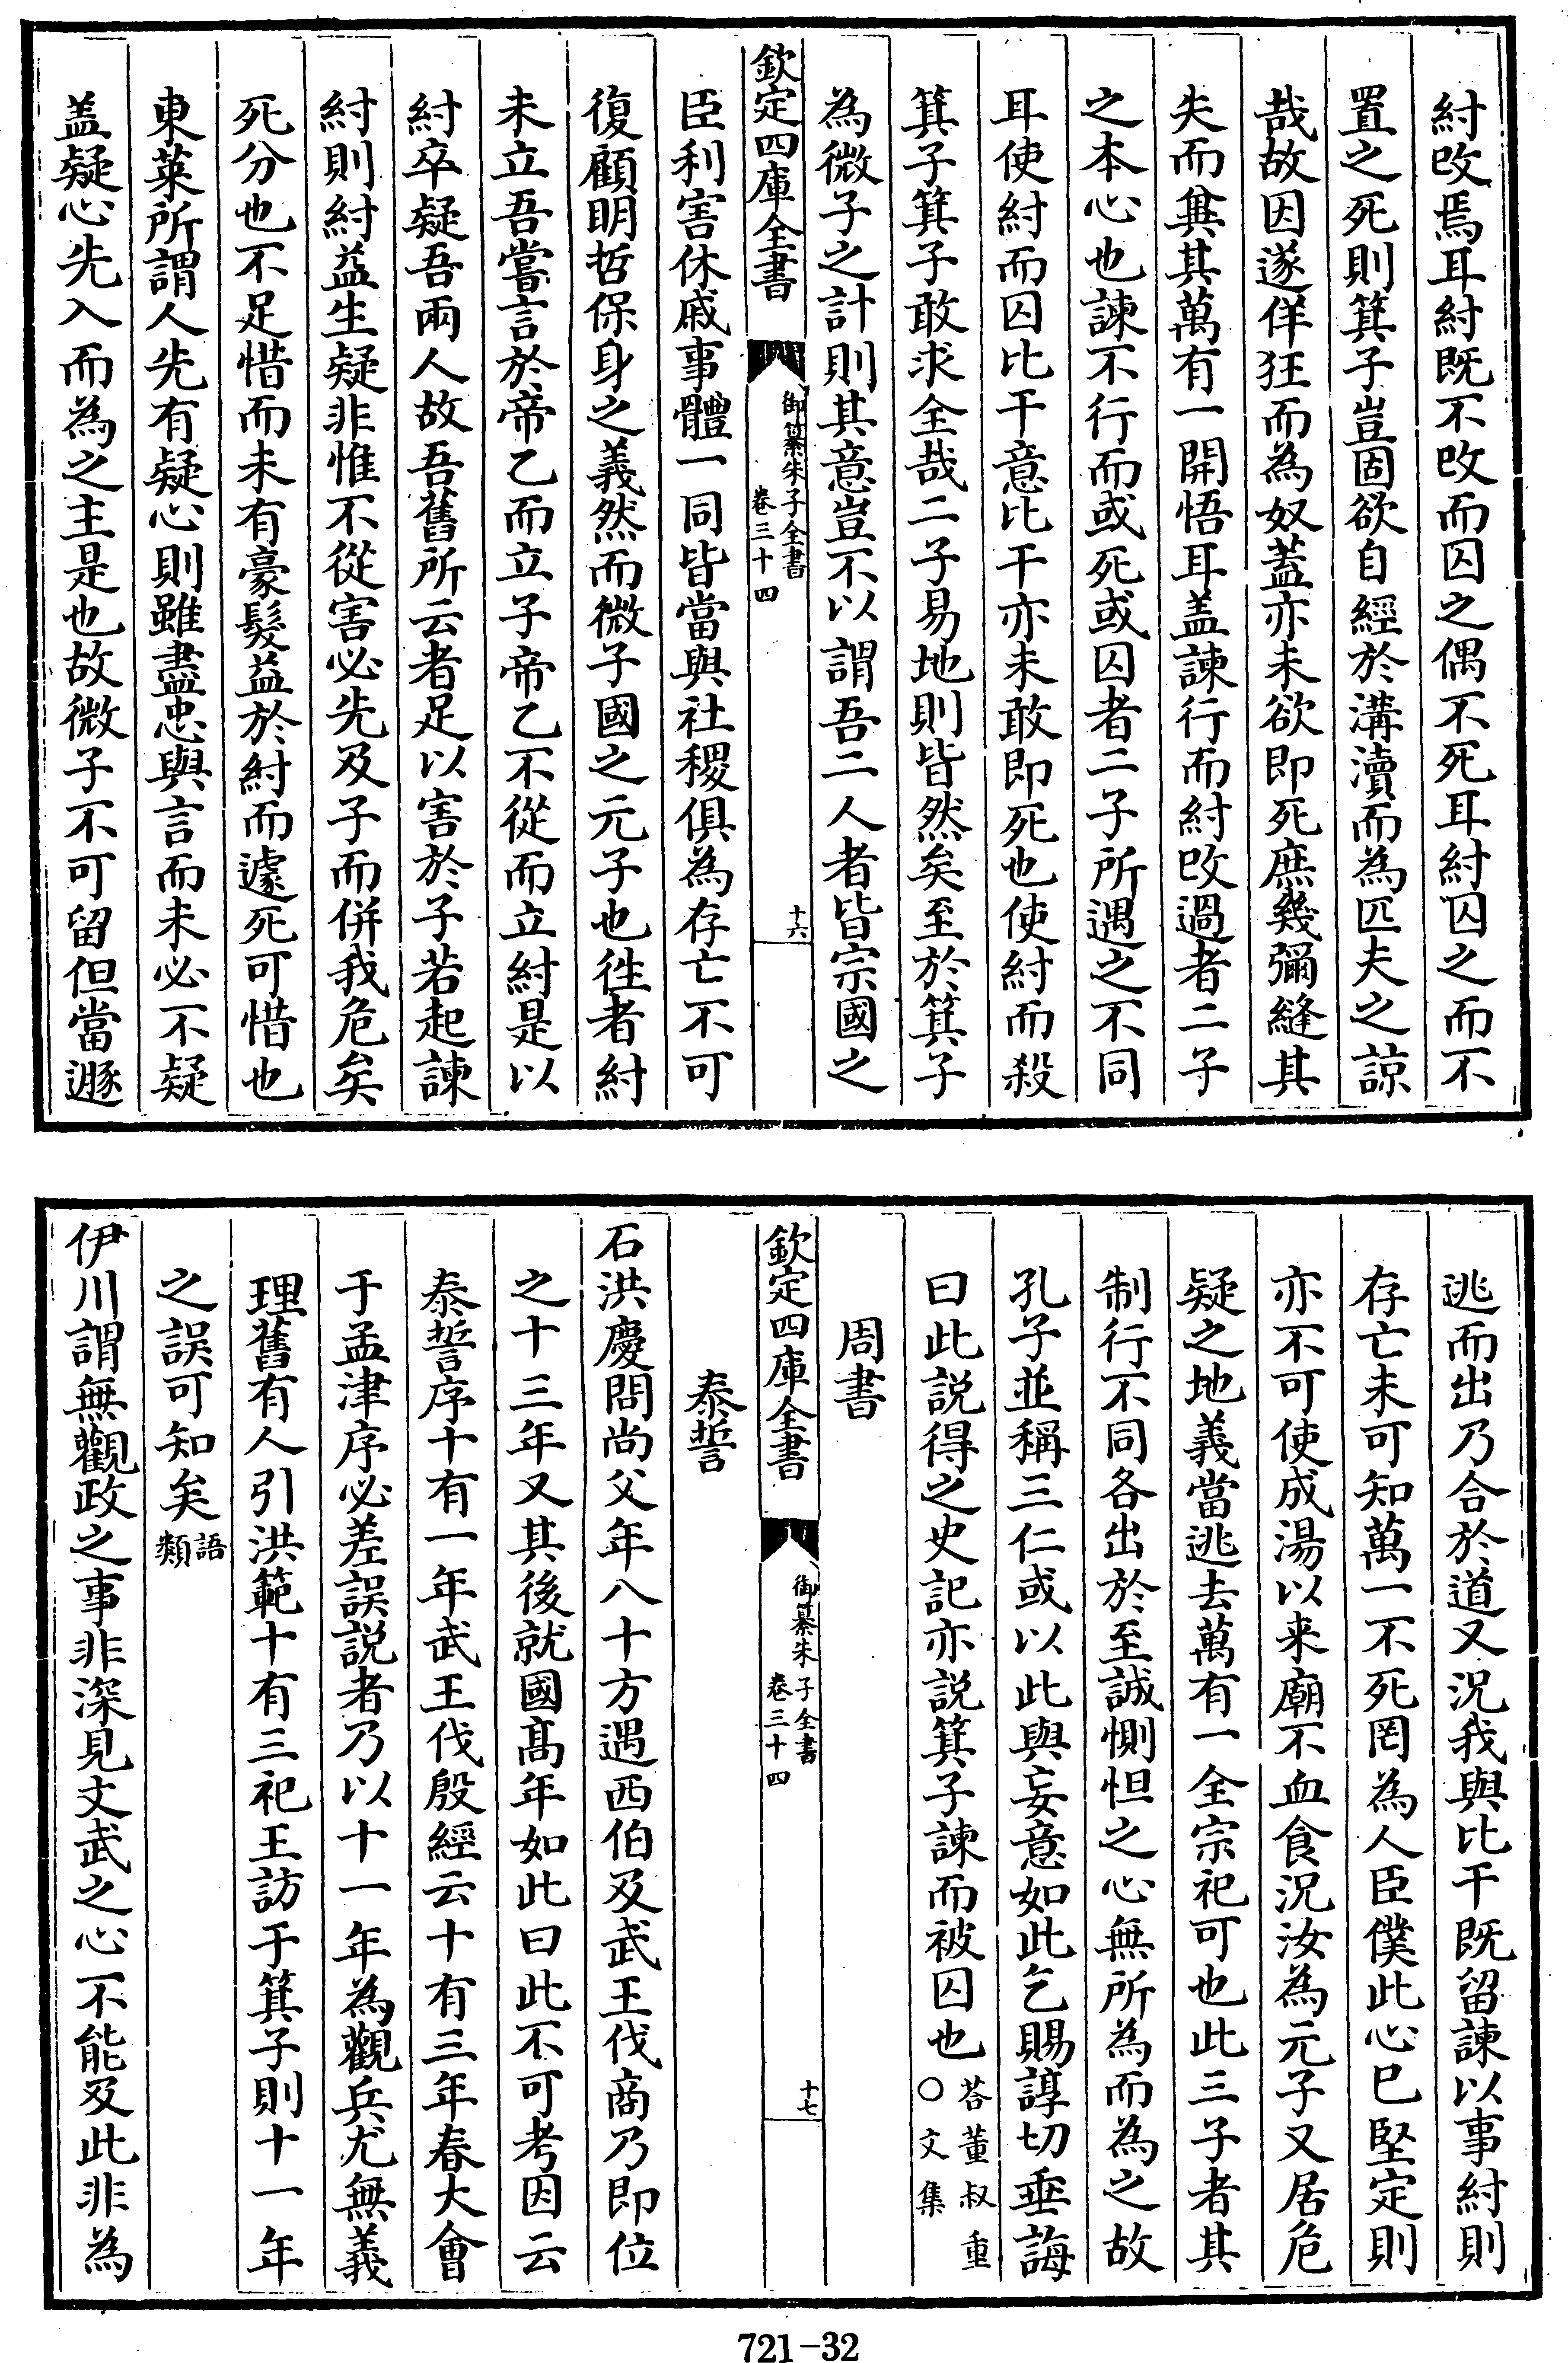 紂改焉耳紂既不改而囚之偶不死耳紂囚之而不
置之死則箕子豈固欲自經於溝瀆而為匹夫之諒
哉故因遂佯狂而為奴蓋亦未欲即死庶幾彌縫其
失而兾其萬有一開悟耳盖諫行而紂改過者二子
之本心也諫不行而或死或囚者二子所遇之不同
耳使紂而囚比干意比干亦未敢即死也使紂而殺
箕子箕子敢求全哉二子易地則皆然矣至於箕子
為微子之計則其意豈不以謂吾二人者皆宗國之
欽定四庫全書
御纂朱子全書
卷三十四
十六
臣利害休戚事體一同皆當與社稷俱為存亡不可
復顧明哲保身之義然而微子國之元子也徃者紂
未立吾嘗言於帝乙而立子帝乙不從而立紂是以
紂卒疑吾兩人故吾舊所云者足以害於子若起諫
紂則紂益生疑非惟不從害必先及子而併我危矣
死分也不足惜而未有豪髮益於紂而遽死可惜也
東萊所謂人先有疑心則雖盡忠與言而未必不疑
盖疑心先入而為之主是也故微子不可留但當遯
逃而出乃合於道又況我與比干既留諫以事紂則
存亡未可知萬一不死罔為人臣僕此心已堅定則
亦不可使成湯以来廟不血食況汝為元子又居危
疑之地義當逃去萬有一全宗祀可也此三子者其
制行不同各出於至誠惻怛之心無所為而為之故
孔子並稱三仁或以此與妄意如此乞賜諄切垂誨
曰此說得之史記亦說箕子諫而被囚也答董叔重○文集
周書
欽定四庫全書
御纂朱子全書
卷三十四
十七
泰誓
石洪慶問尚父年八十方遇西伯及武王伐商乃即位
之十三年又其後就國髙年如此曰此不可考因云
泰誓序十有一年武王伐殷經云十有三年春大會
于孟津序必差誤說者乃以十一年為觀兵尤無義
理舊有人引洪範十有三祀王訪于箕子則十一年
之誤可知矣語類
伊川謂無觀政之事非深見文武之心不能及此非為
721-32